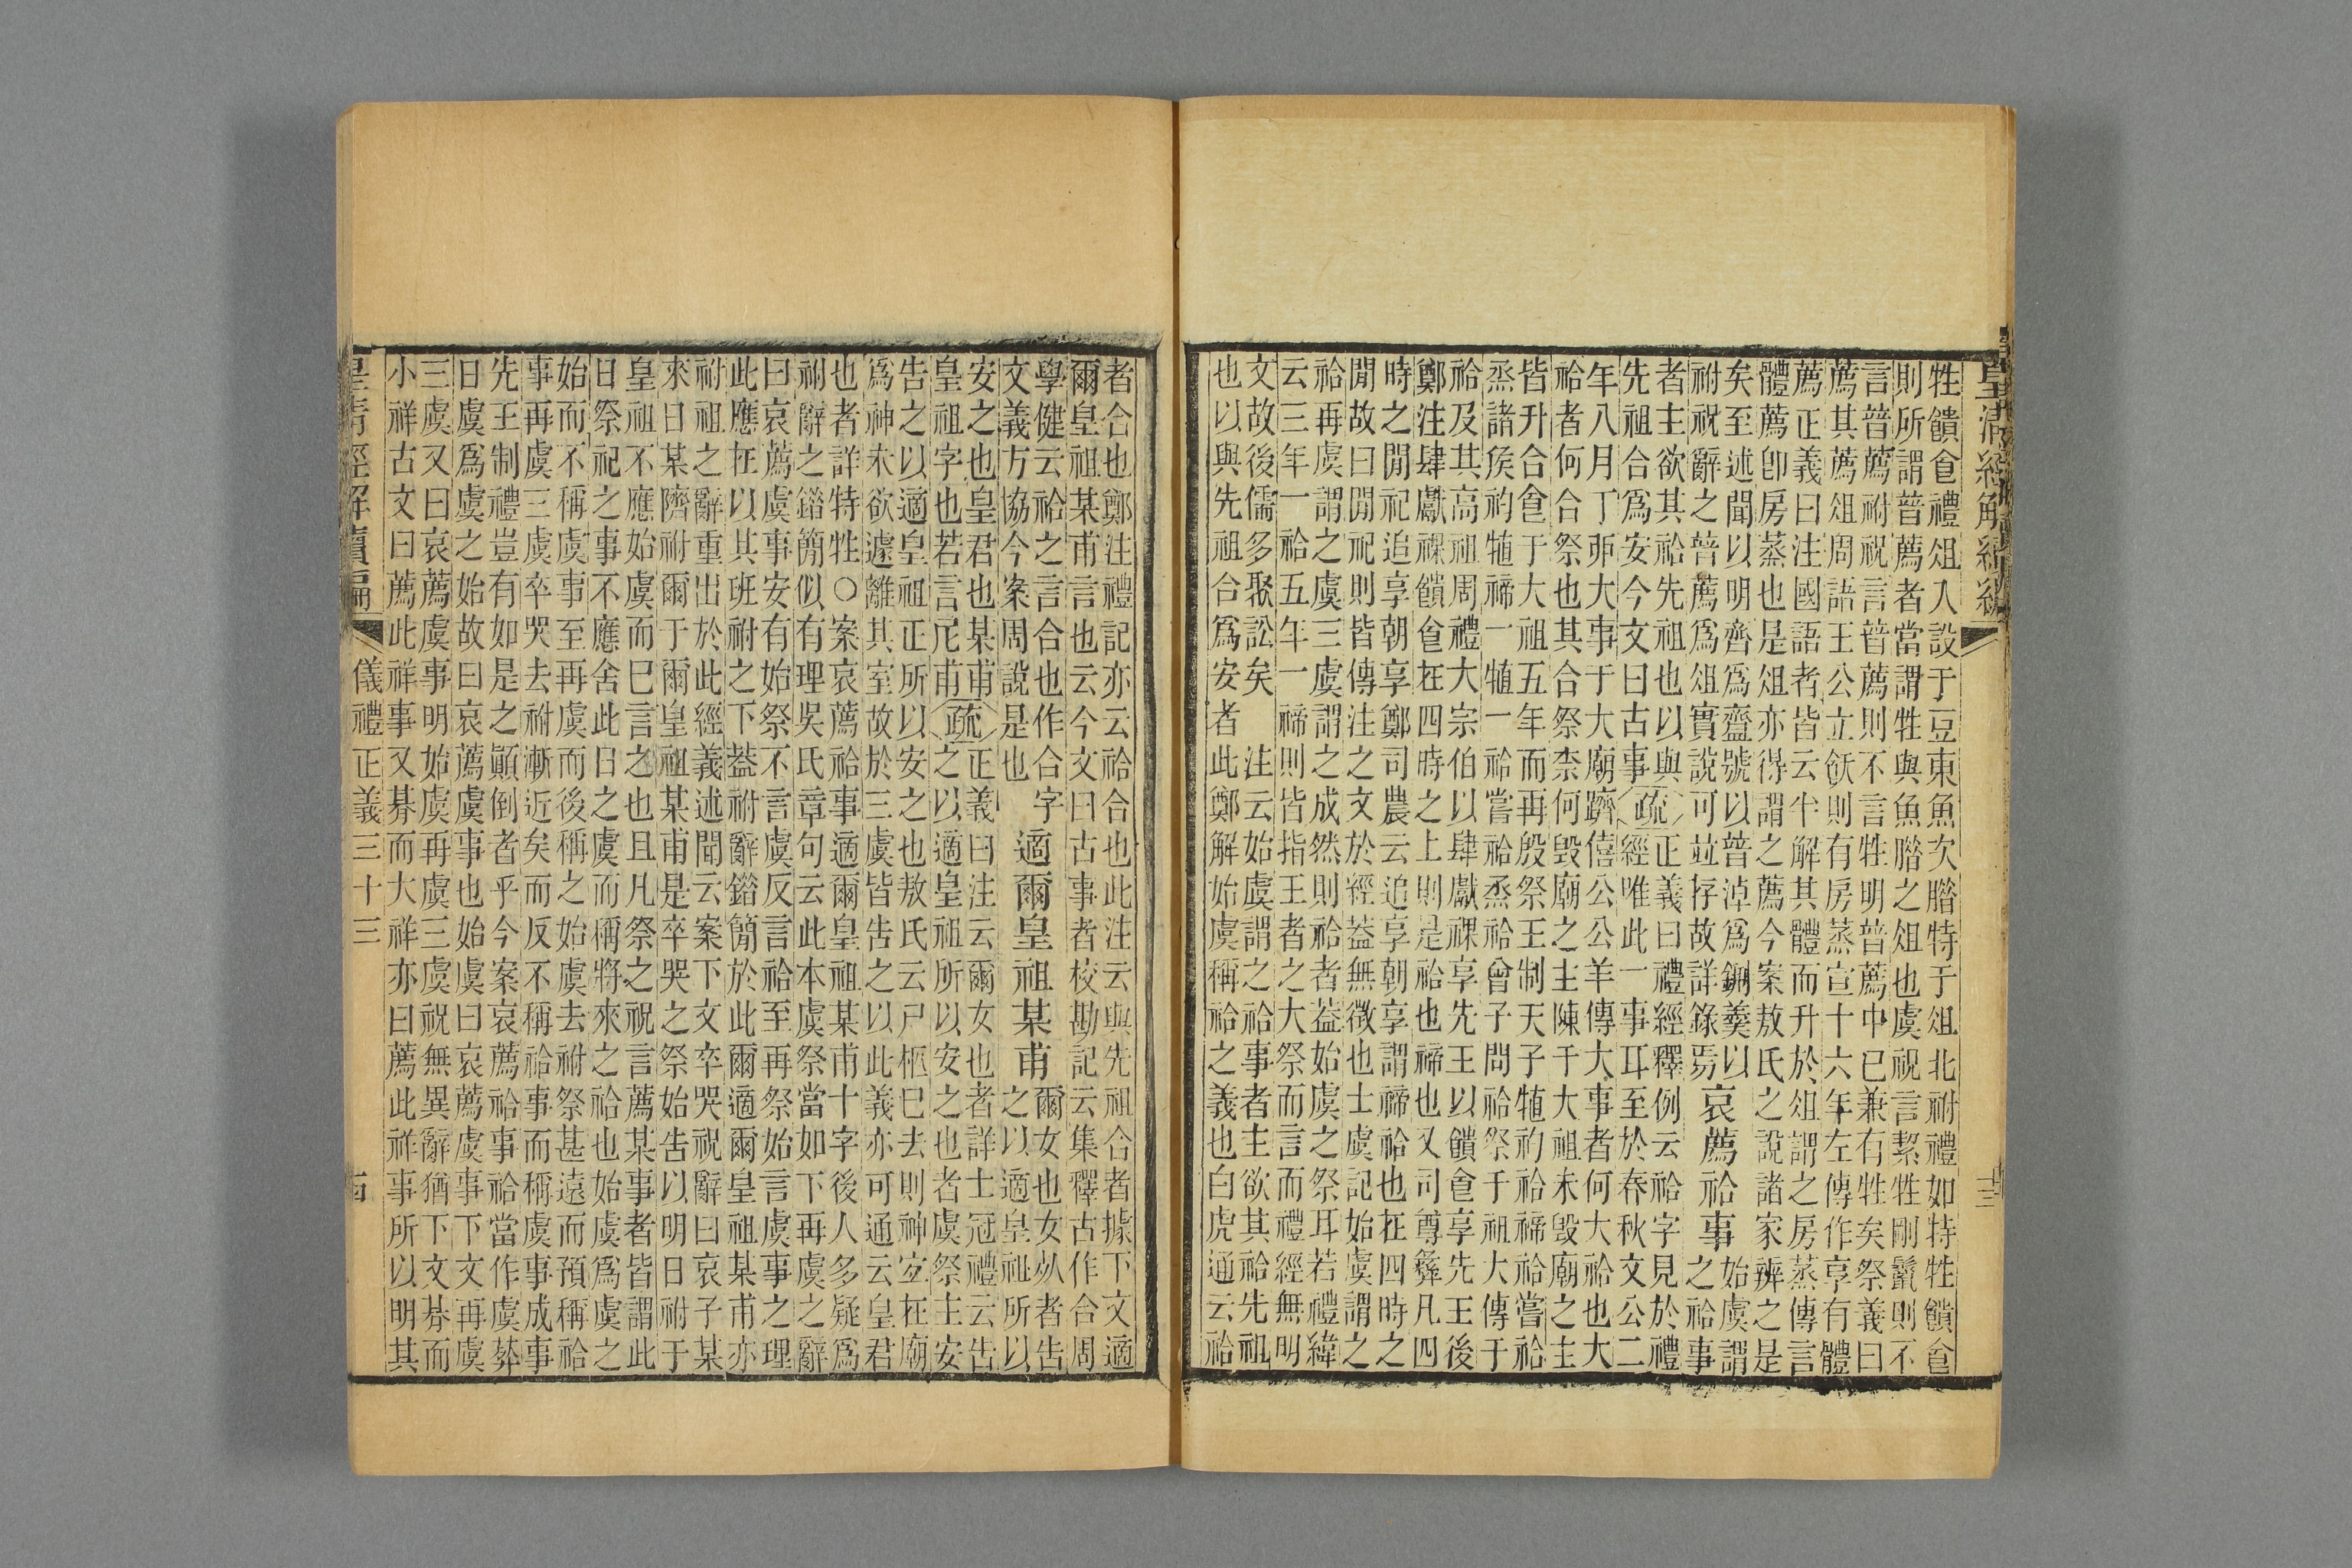 皇清經解續編
牲饋食禮俎入設于豆東魚次腊特于俎北祔禮如特牲饋食
則所謂普薦者當謂牲與魚腊之俎也虞祝言絜牲剛鬣則不
言普薦祔祝言普薦則不言牲明普薦中已兼有牲矣祭義曰
薦其薦俎周語王公立飫則有房蒸宣十六年左傳作享有體
薦正義曰注國語者皆云半解其體而升於俎謂之房蒸傳言
體薦卽房蒸也是俎亦得謂之薦今案敖氏之說諸家辨之是
矣至述聞以明齊爲齍號以普淖爲鉶羹以
祔祝辭之普薦爲俎實說可竝存故詳錄焉
哀薦祫事
始虞謂
之祫事
者主欲其祫先祖也以與
先祖合爲安今文曰古事
疏
正義曰禮經釋例云祫字見於禮
經唯此一事耳至於春秋文公二
年八月丁卯大事于大廟躋僖公公羊傳大事者何大祫也大
祫者何合祭也其合祭柰何毀廟之主陳于大祖未毀廟之主
皆升合食于大祖五年而再殷祭王制天子犆礿祫禘祫嘗祫
烝諸侯礿犆禘一犆一祫嘗祫烝祫曾子問祫祭于祖大傳于
祫及其高祖周禮大宗伯以肆獻祼享先王以饋食享先王後
鄭注肆獻祼饋食在四時之上則是祫也禘也又司尊彝凡四
時之閒祀追享朝享鄭司農云追享朝享謂禘祫也在四時之
閒故曰閒祀則皆傳注之文於經葢無徵也士虞記始虞謂之
祫再虞謂之虞三虞謂之成然則祫者葢始虞之祭耳若禮緯
云三年一祫五年一禘則皆指王者之大祭而言而禮經無明
文故後儒多聚訟矣　注云始虞謂之祫事者主欲其祫先祖
也以與先祖合爲安者此鄭解始虞稱祫之義也白虎通云祫
者合也鄭注禮記亦云祫合也此注云與先祖合者據下文適
爾皇祖某甫言也云今文曰古事者校勘記云集釋古作合周
學健云祫之言合也作合字
文義方協今案周說是也
適爾皇祖某甫
爾女也女死者告
之以適皇祖所以
安之也皇君也某甫
皇祖字也若言尼甫
疏
正義曰注云爾女也者詳士冠禮云告
之以適皇祖所以安之也者虞祭主安
告之以適皇祖正所以安之也敖氏云尸柩已去則神宜在廟
爲神未欲遽離其室故於三虞皆告之以此義亦可通云皇君
也者詳特牲○案哀薦祫事適爾皇祖某甫十字後人多疑爲
祔辭之錯簡似有理吳氏章句云此本虞祭當如下再虞之辭
曰哀薦虞事安有始祭不言虞反言祫至再祭始言虞事之理
此應在以其班祔之下葢祔辭錯簡於此爾適爾皇祖某甫亦
祔祖之辭重出於此經義述聞云案下文卒哭祝辭曰哀子某
來日某隮祔爾于爾皇祖某甫是卒哭之祭始告以明日祔于
皇祖不應始虞而已言之也且凡祭之祝言薦某事者皆謂此
日祭祀之事不應舍此日之虞而稱將來之祫也始虞爲虞之
始而不稱虞事至再虞而後稱之始虞去祔祭甚遠而預稱祫
事再虞三虞卒哭去祔漸近矣而反不稱祫事而稱虞事成事
先王制禮豈有如是之顛倒者乎今案哀薦祫事祫當作虞葬
日虞爲虞之始故曰哀薦虞事也始虞曰哀薦虞事下文再虞
三虞又曰哀薦虞事明始虞再虞三虞祝無異辭猶下文朞而
小祥古文曰薦此祥事又朞而大祥亦曰薦此祥事所以明其
皇清經解續編　儀禮正義三十三